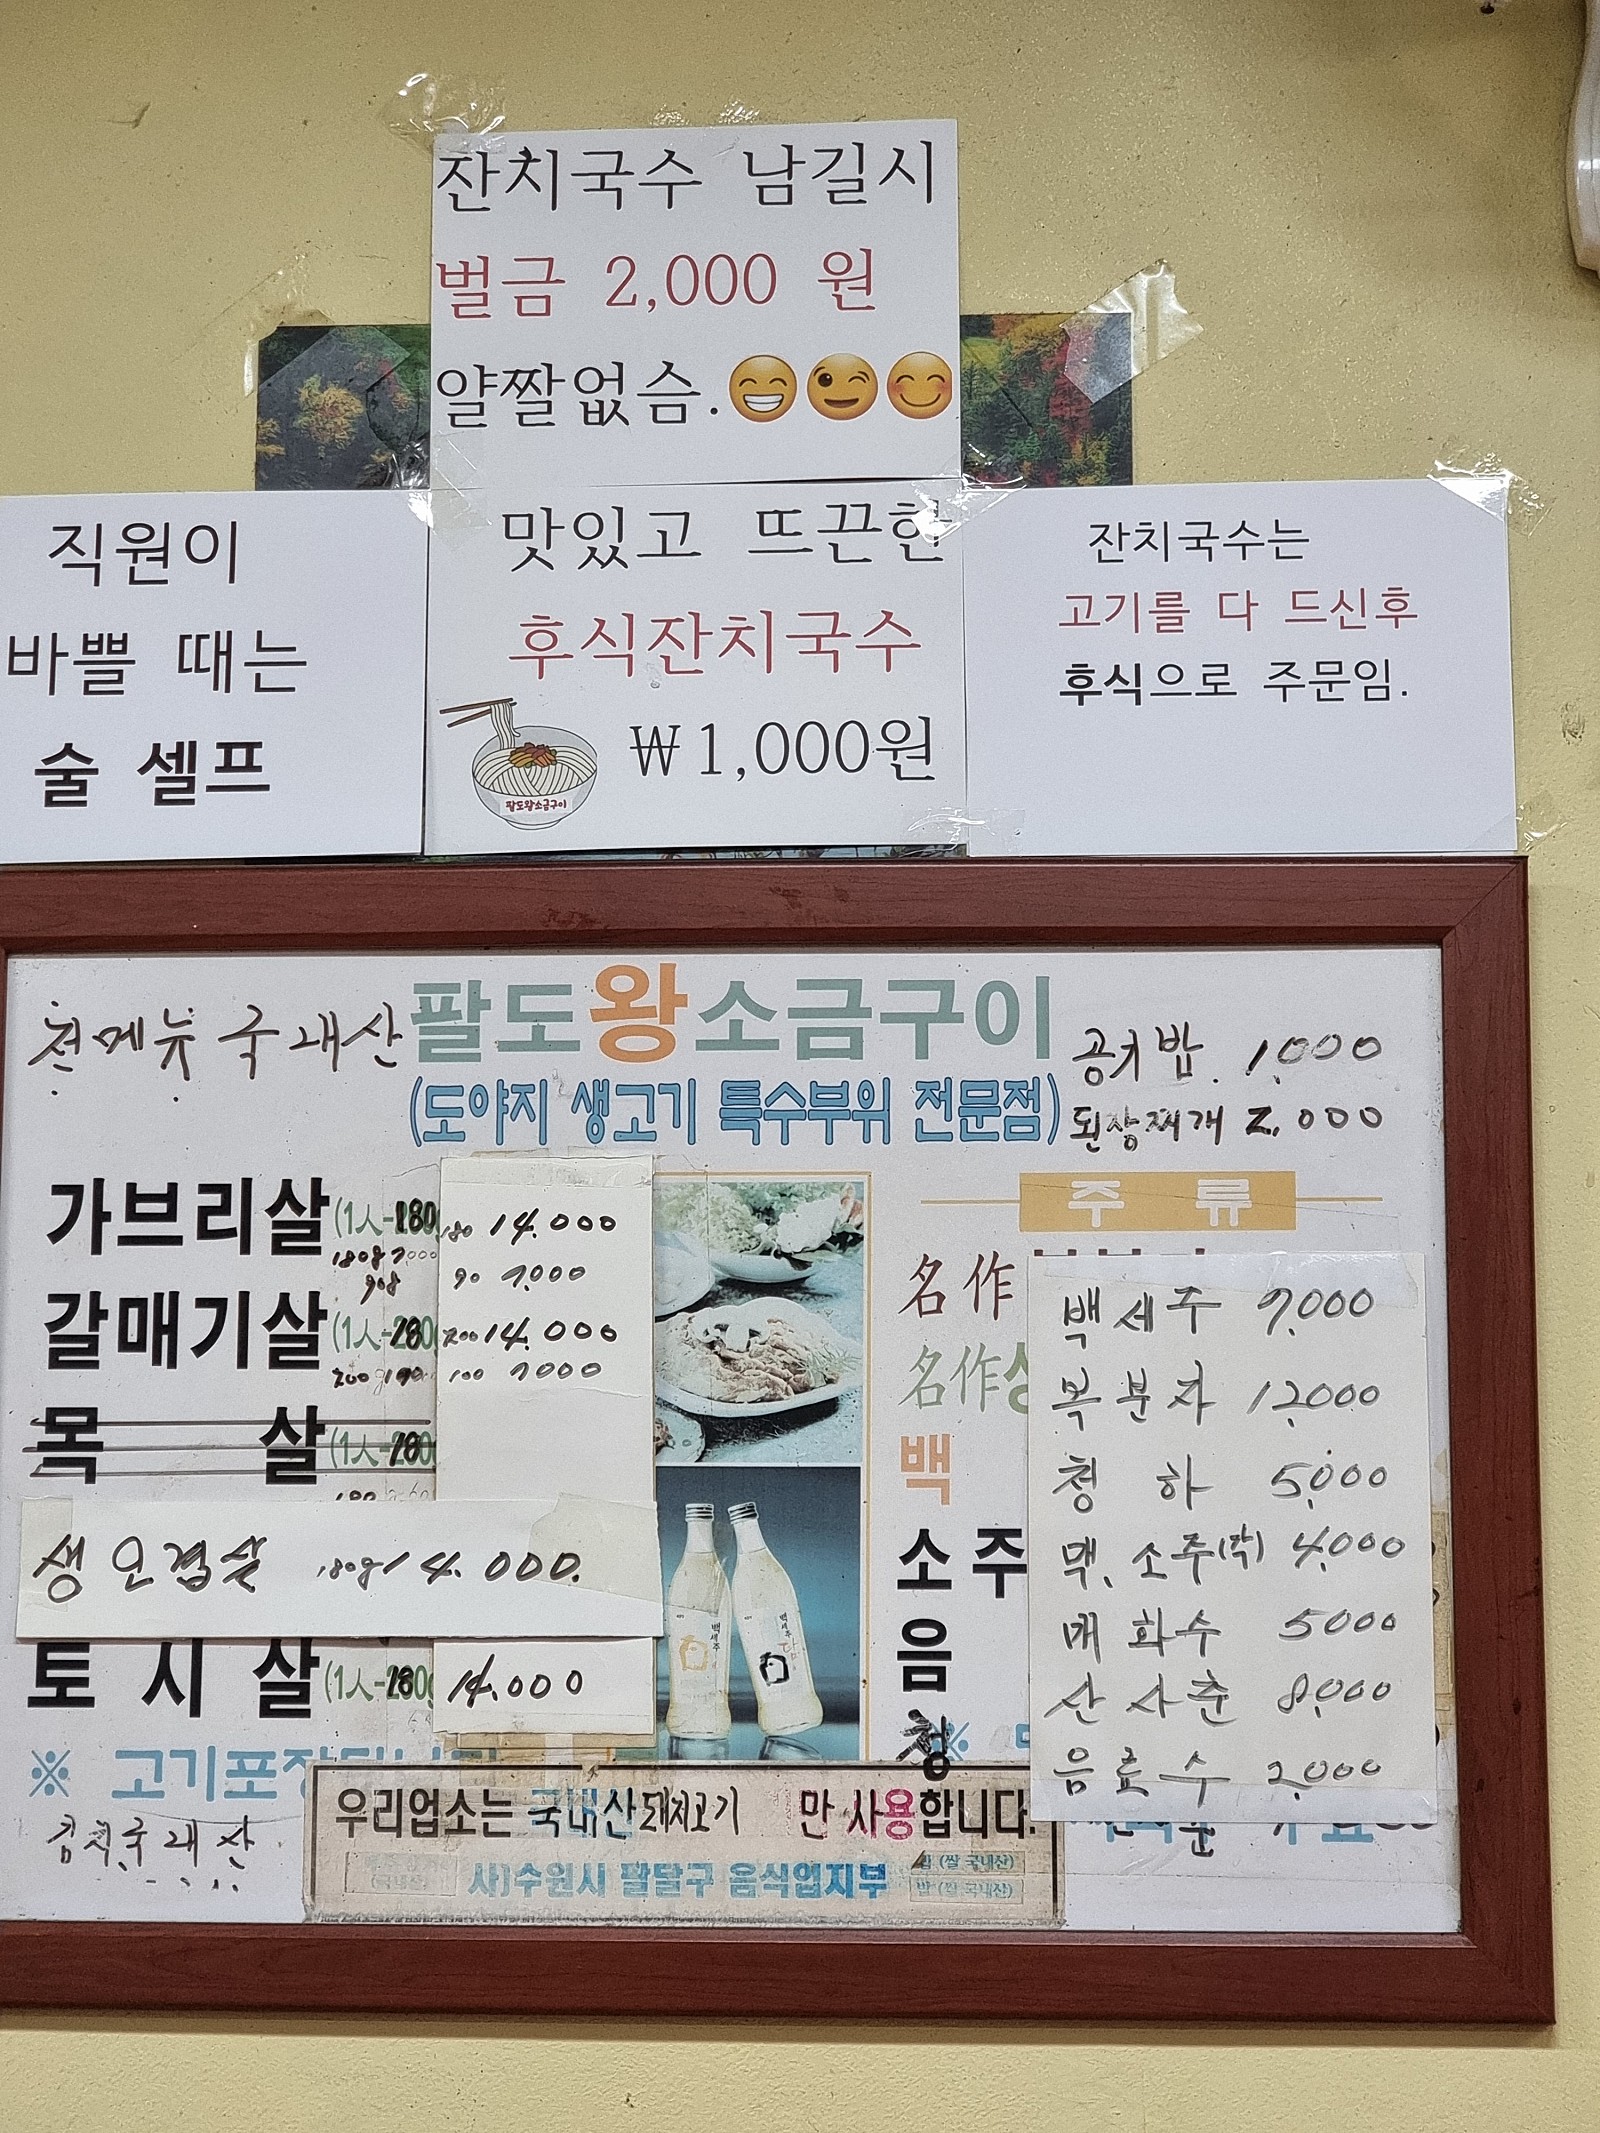 잔치국수 남길시
벌금 2,000 원
얄짤없슴.😁😉😊
직원이
바쁠 때는
술 셀프
맛있고 뜨끈한
후식잔치국수
₩1,000원
팔도왕소금구이
잔치국수는
고기를 다 드신후
후식으로 주문임.
전메뉴 국내산
팔도왕소금구이
(도야지 생고기 특수부위 전문점)
공기밥 1,000
된장찌개 2,000
가브리살 (1人-180 180 14.000
90 7.000
갈매기살 (1人- 200 14.000
200g 100 7000
목 살 (1人-
생 오겹살 180g 14.000.
토 시 살 (1人- 14.000
※ 고기포장
김치국내산
주 류
名作
名作
백
소주
음
백세주 7.000
복분자 12.000
청 하 5.000
맥. 소주(막) 4.000
매 화 수 5000
산 사 춘 8.000
음 료 수 2.000
백세주
백세주
우리업소는 국내산 돼지고기 만 사용합니다.
사)수원시 팔달구 음식업지부
밥 (쌀 국내산)
밥 (쌀 국내산)